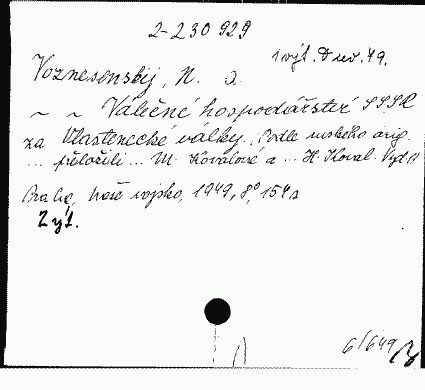 2-230929
1 výt. Duv. 49.
Voznesenskij, N. a
~ ~ Válečné hospodářství SSSR
za Vlastenecké války. Podle ruského orig.
... přeložili ... M. Kovalové a ... H. Koval. Vyd. 1
Praha, Naše vojsko, 1949, 8°, 154 s
2 výt.
6/649